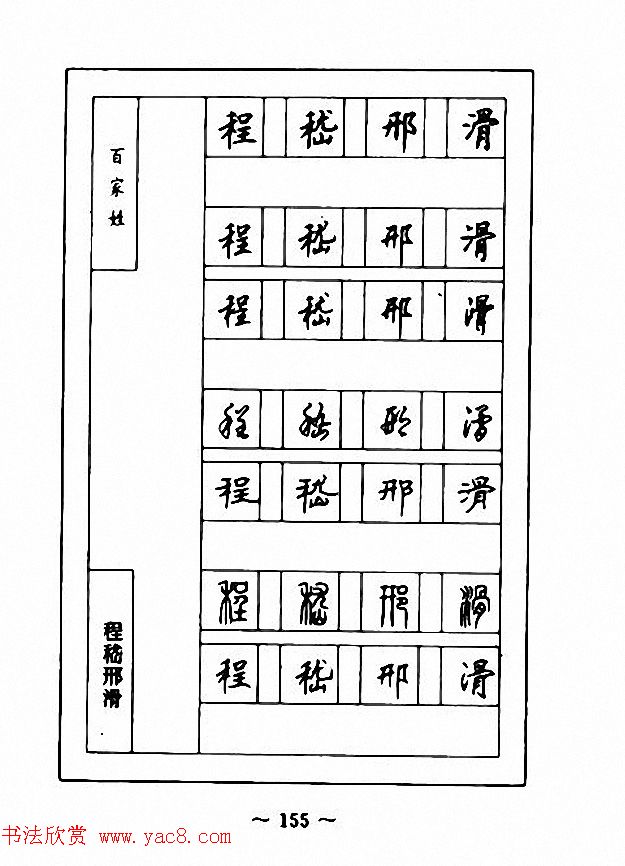 百家姓
程 嵇 邢 滑
程 嵇 邢 滑
程 嵇 邢 滑
程 嵇 邢 滑
程 嵇 邢 滑
程 嵇 邢 滑
程 嵇 邢 滑
程嵇邢滑
~ 155 ~
书法欣赏 www.yac8.com